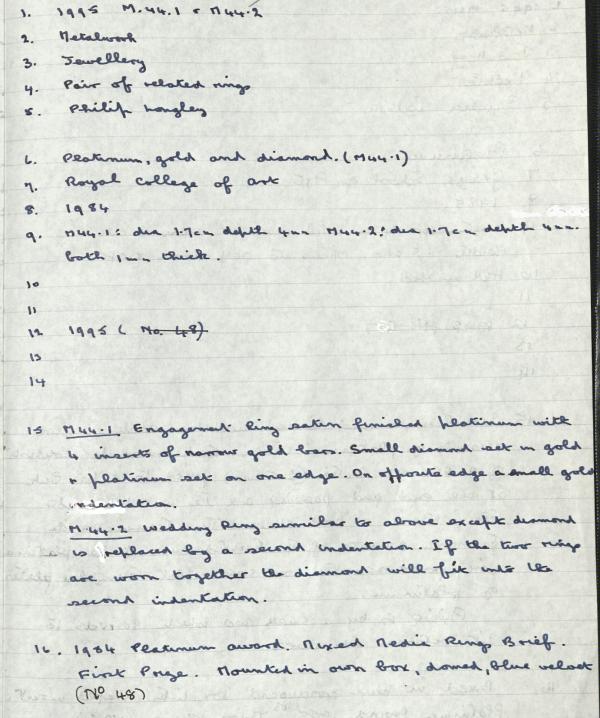 1. 1995 M.44.1 & M44.2
2. Metalwork
3. Jewellery
4. Pair of related rings
5. Philip Longley
6. Platinum, gold and diamond. (M44.1)
7. Royal College of Art
8. 1984
9. M44.1: dia 1.7cm depth 4mm M44.2: dia 1.7cm depth 4mm.
both 1mm thick.
10
11
12 1995 ( No. 48)
13
14
15 M44.1 Engagement Ring satin finished platinum with
4 inserts of narrow gold bars. Small diamond set in gold
& platinum set on one edge. On opposite edge a small gold
indentation.
M.44.2 Wedding Ring similar to above except diamond
is replaced by a second indentation. If the two rings
are worn together the diamond will fit into the
second indentation.
16. 1984 Platinum award. Mixed Media Rings Brief.
First Prize. Mounted in own box, domed, blue velvet
(No 48)